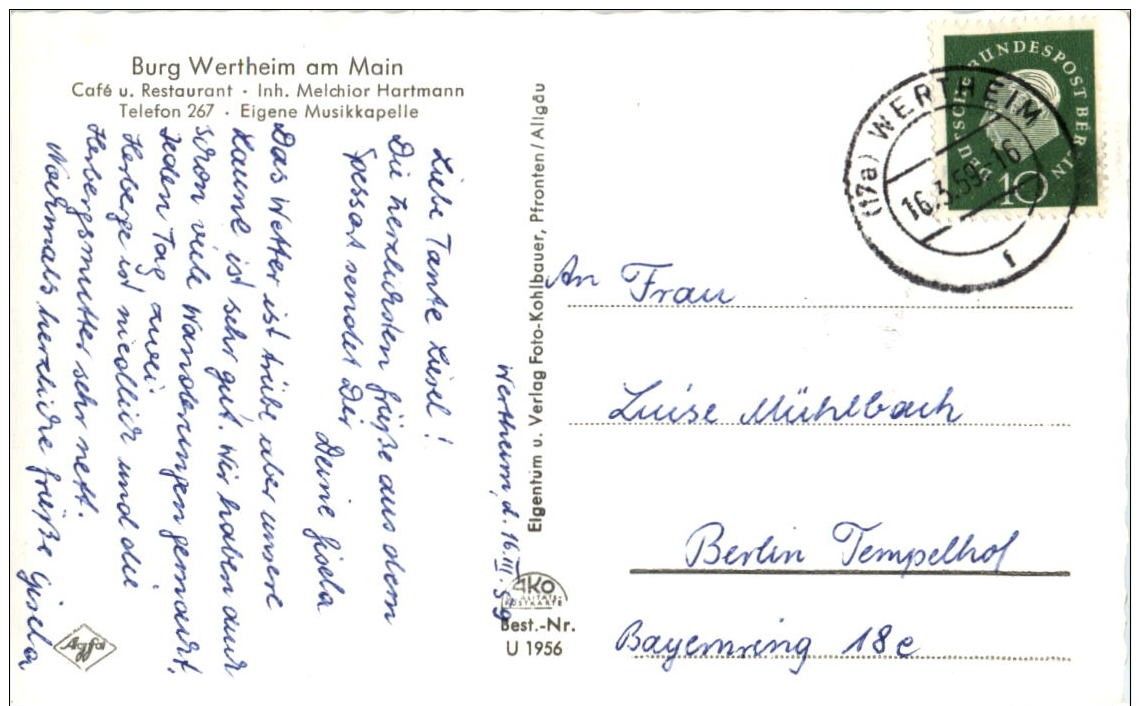 Burg Wertheim am Main
Café u. Restaurant · Inh. Melchior Hartmann
Telefon 267 · Eigene Musikkapelle
Wertheim, d. 16.III.59
Liebe Tante Liesel!
Die herzlichsten Grüße aus dem
Spessart sendet Dir
Deine Gisela
Das Wetter ist trübe aber unsere
Laune ist sehr gut. Wir haben auch
schon viele Wanderungen gemacht,
jeden Tag zwei.
Herberge ist niedlich und die
Herbergsmutter sehr nett.
Nochmals herzliche Grüße Gisela
Agfa
Eigentum u. Verlag Foto-Kohlbauer, Pfronten/Allgäu
AKO
QUALITÄTS-
POSTKARTE
Best.-Nr.
U 1956
DEUTSCHE BUNDESPOST BERLIN
10
(17a) WERTHEIM
16.3.59.-16
f
An Frau
Luise Mühlbach
Berlin Tempelhof
Bayernring 18c